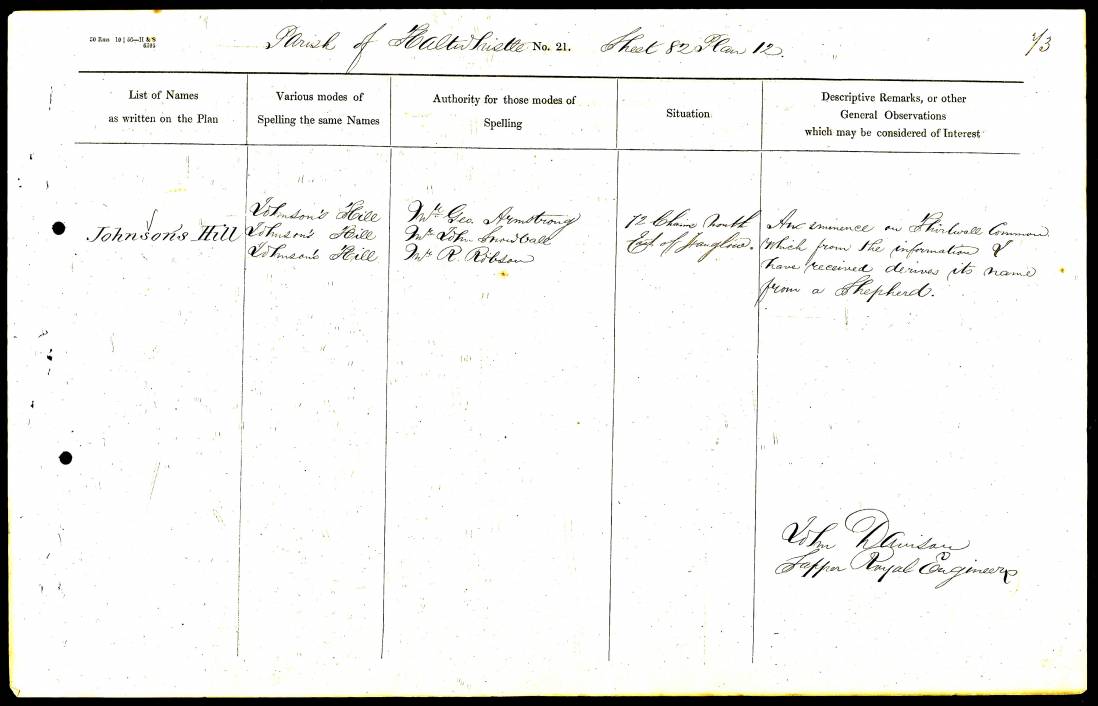 50 Rms 10 | 56—H & S
6305
Parish of Haltwhistle No. 21. Sheet 82 Plan 12.
73
List of Names
as written on the Plan
Various modes of
Spelling the same Names
Authority for those modes of
Spelling
Situation
Descriptive Remarks, or other
General Observations
which may be considered of Interest
Johnson's Hill
Johnson's Hill
Johnson's Hill
Johnson's Hill
Mr. Geo. Armstrong
Mr. John Snowball
Mr. R. Robson
72 Chains North
East of
An eminence on Thirlwall Common
Which from the information I
have received derives its name
from a Shepherd.
John Davison
Sapper Royal Engineers